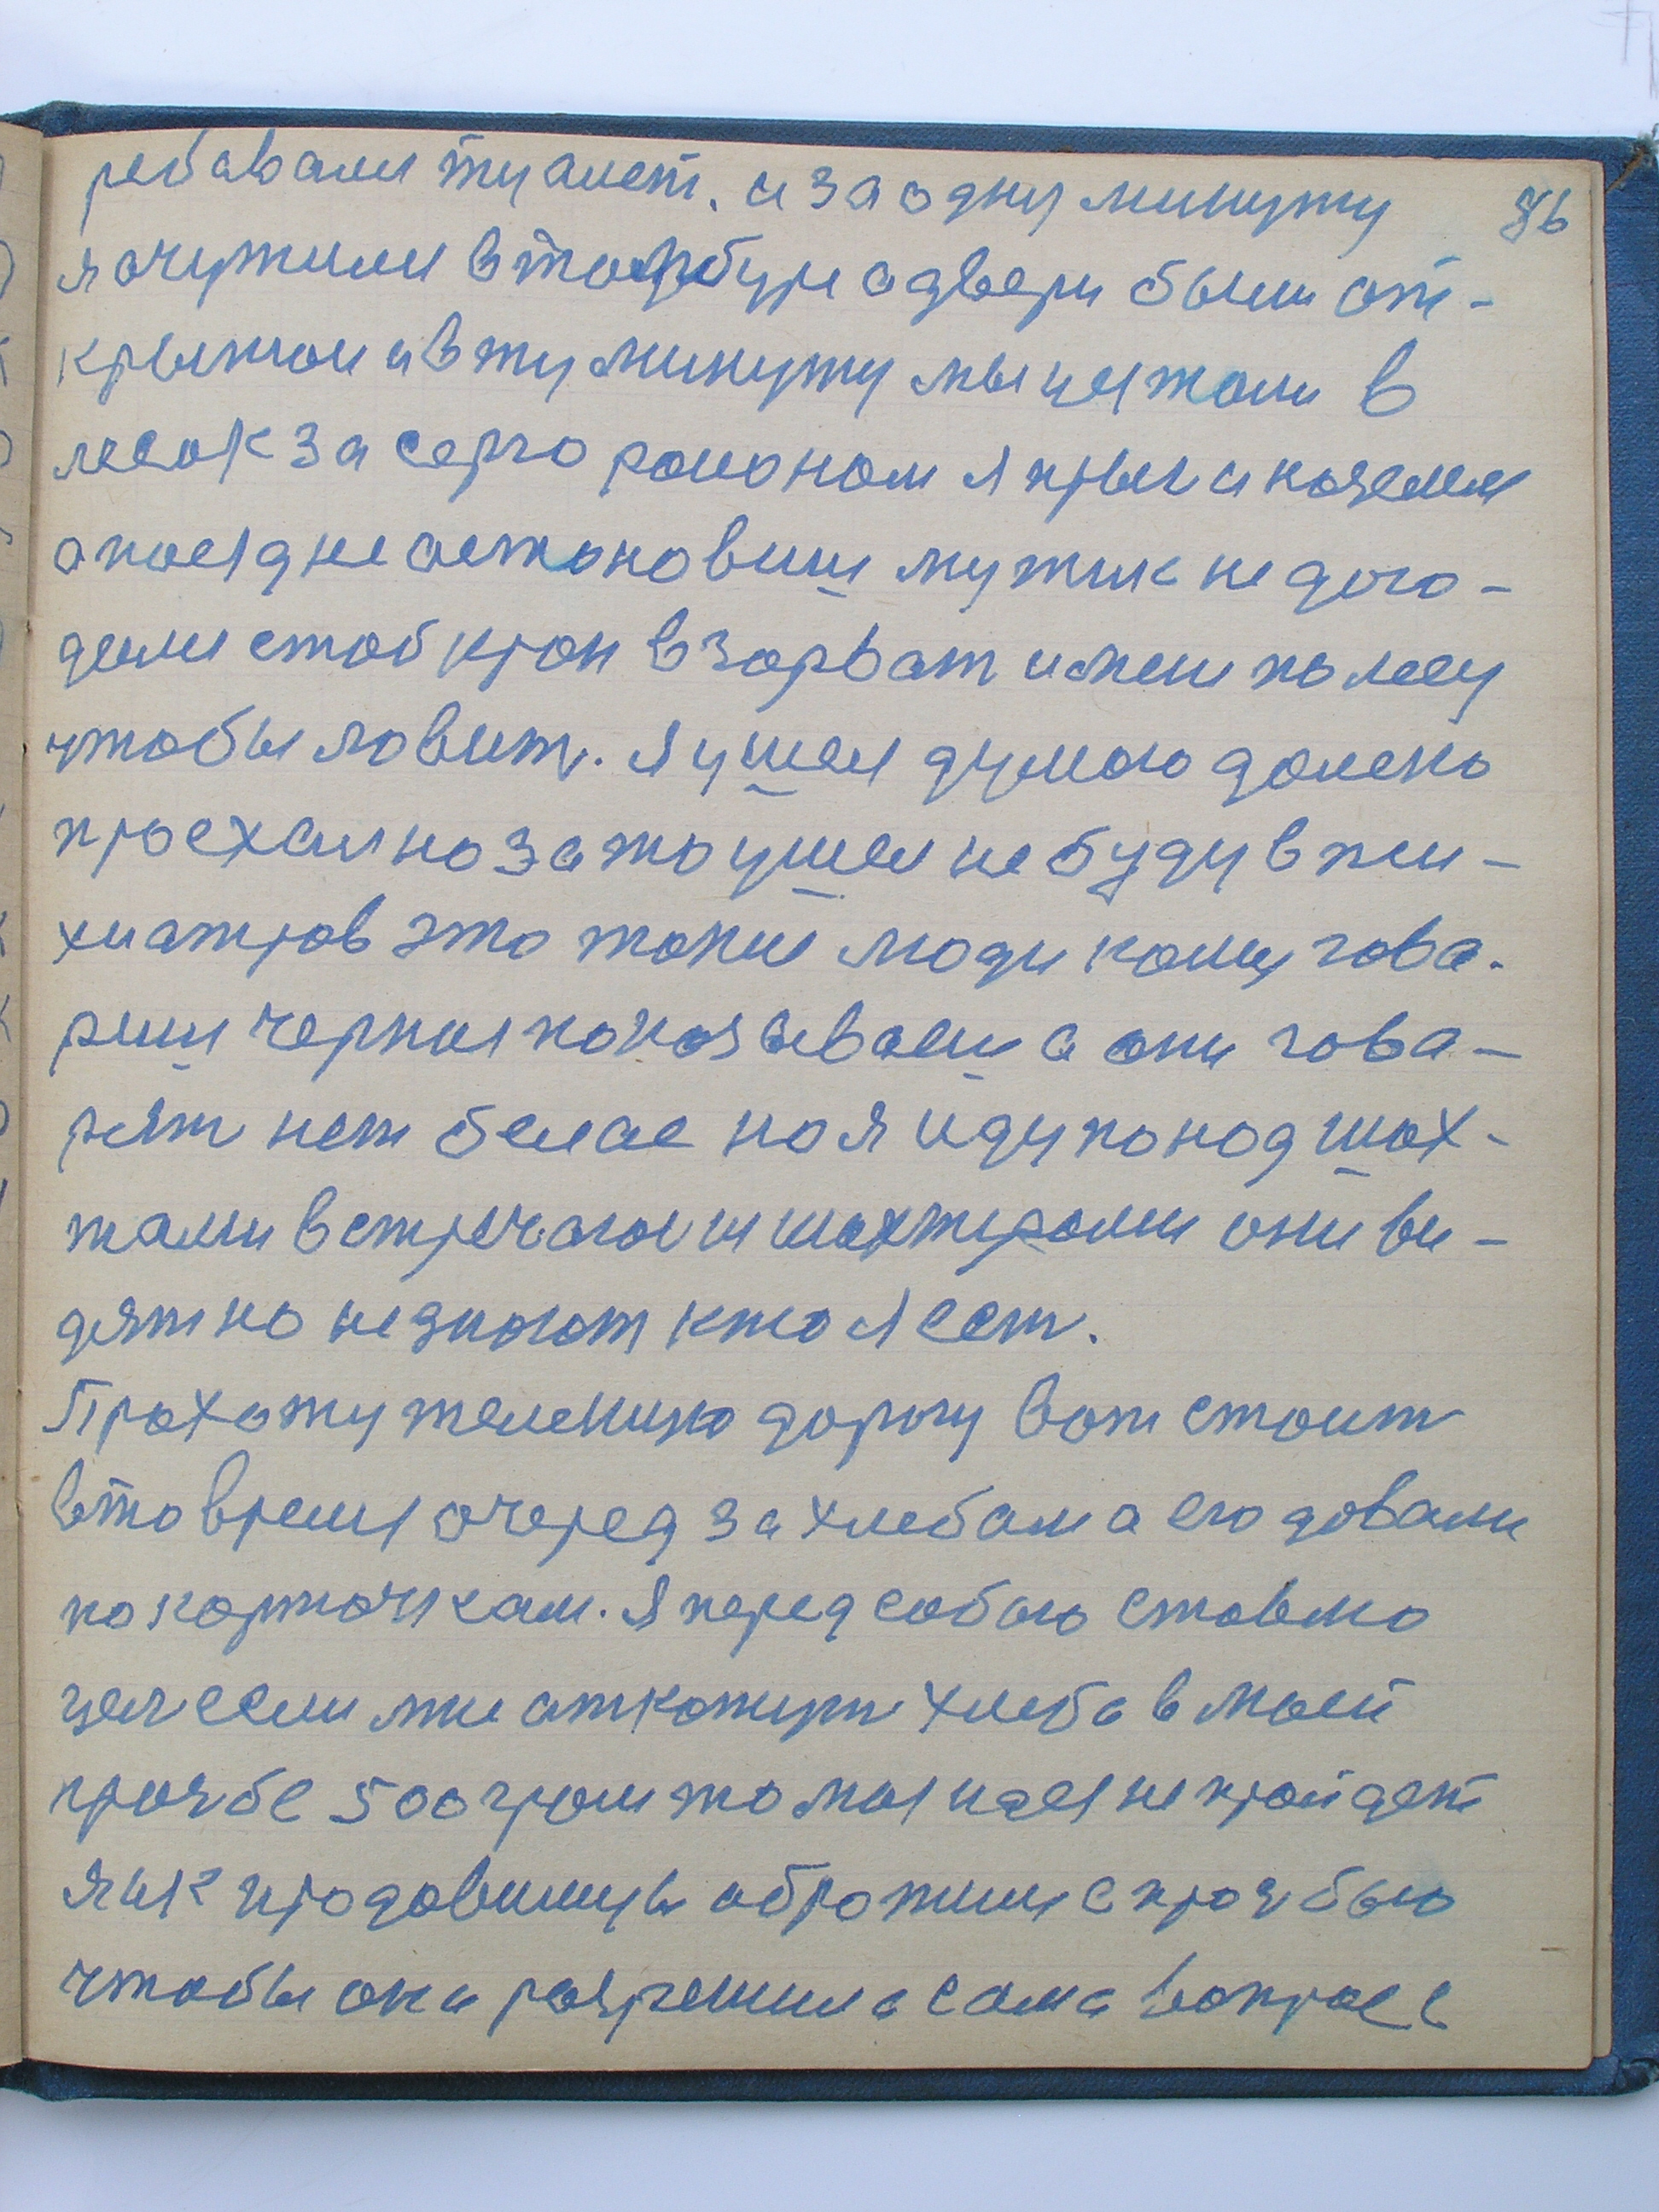 ребавали туалет. и за одну минуту 86
я очутили в тамбуре а двери были от-
крытои и в ту минуту мы уежали в
лесок за серго раионом я прыг и на землю
а поезд не астоновиш мужик не дога-
дали стоб кран взорват и мене по лесу
чтобы ловит. Я ушел думаю далеко
проехал но зато ушел не буду в пси-
хиатров это такие люди кому гова-
риш черные показываеш а они гова-
рят нет белае но я иду по над шах-
тами встречаюс и шахтерами они ви-
дят но не знают кто я ест.
Прохожу железную дорогу вот стоит
в то время очеред за хлебом а его довали
по карточкам. Я перед собою ставлю
цел если мне аткажут хлеба в моей
прозбе 500 грам то моя идея не пройдет
я и к продовшицы обротился с прозбою
чтобы она разрешила сама вопрос